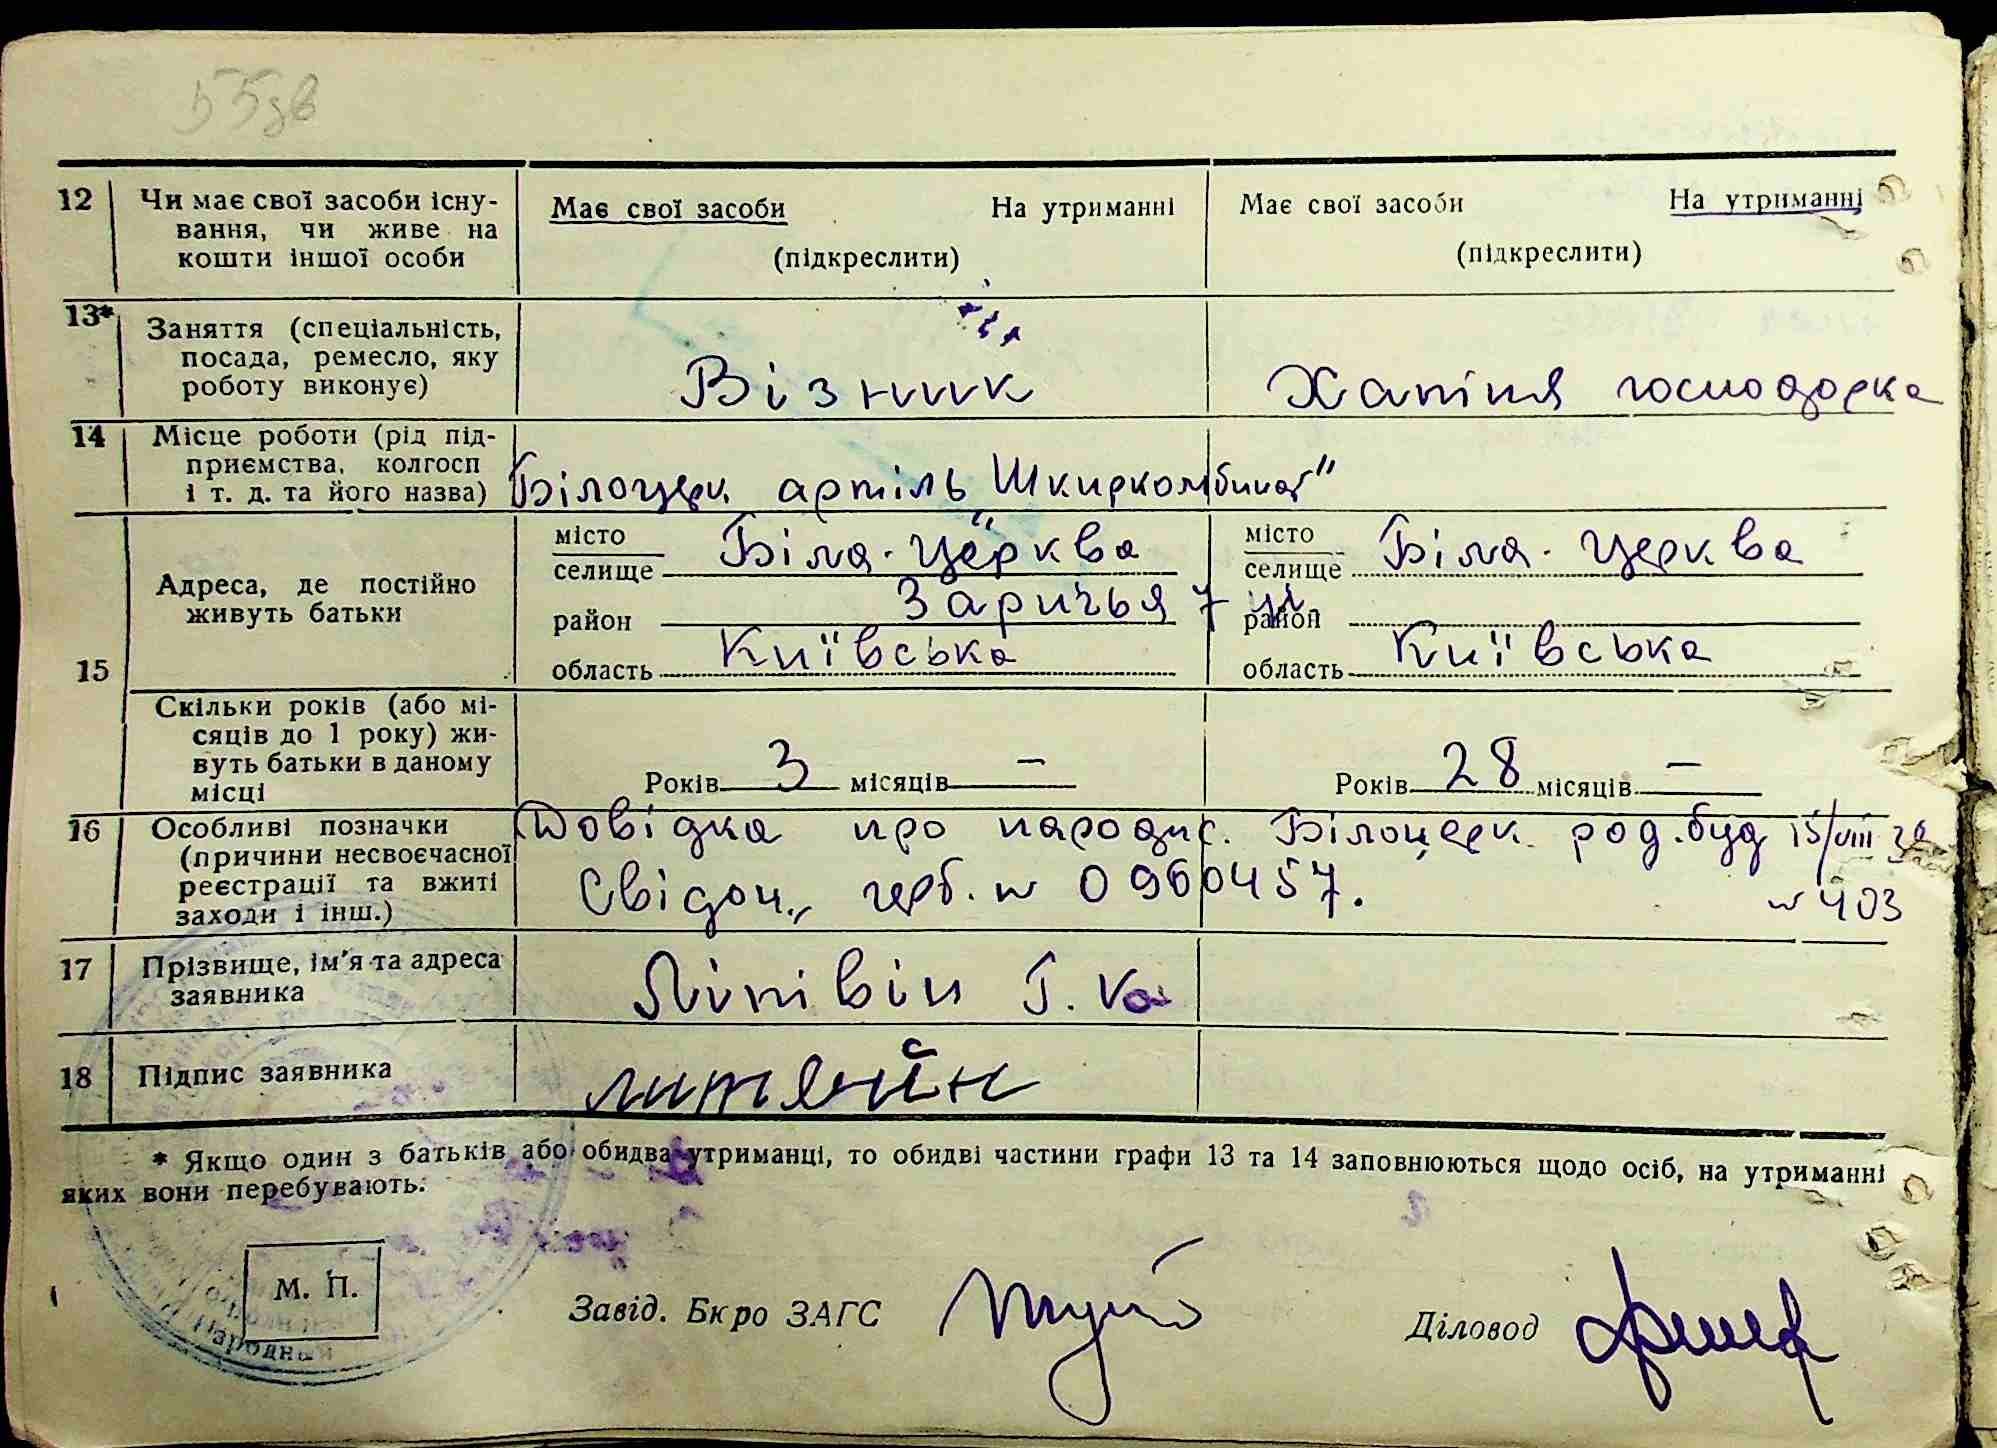 55зв
12 Чи має свої засоби існу-
вання, чи живе на
кошти іншої особи
Має свої засоби На утриманні
(підкреслити)
Має свої засоби На утриманні
(підкреслити)
13* Заняття (спеціальність,
посада, ремесло, яку
роботу виконує)
Візник
Хатня господарка
14 Місце роботи (рід під-
приємства, колгосп
і т. д. та його назва)
Білоцерк. артіль „Шкиркомбинат"
15
Адреса, де постійно
живуть батьки
місто
селище Біла-Церква
район Заричья 7
область Київська
місто
селище Біла-Церква
район
область Київська
Скільки років (або мі-
сяців до 1 року) жи-
вуть батьки в даному
місці
Років 3 місяців —
Років 28 місяців —
16 Особливі позначки
(причини несвоєчасної
реєстрації та вжиті
заходи і інш.)
Довідка про народж. Білоцерк. род.буд 15/VIII
Свідоц. герб. № 0960457. № 403
17 Прізвище, ім'я та адреса
заявника
Літвін Г.
18 Підпис заявника
* Якщо один з батьків або обидва утриманці, то обидві частини графи 13 та 14 заповнюються щодо осіб, на утриманні
яких вони перебувають.
М. П.
Завід. Бюро ЗАГС
Діловод
Народний